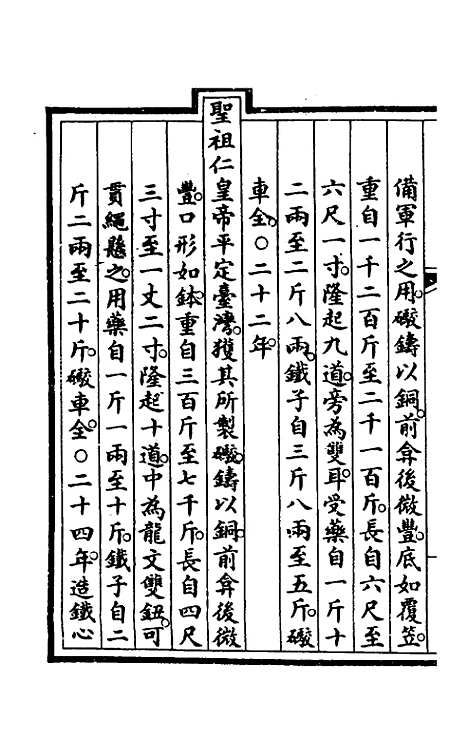 備軍行之用。礮鑄以銅。前弇後微豐。底如覆笠。
重自一千二百斤至二千一百斤。長自六尺至
六尺一寸。隆起九道。旁為雙耳。受藥自一斤十
二兩至二斤八兩。鐵子自三斤八兩至五斤。礮
車全。○二十二年。
聖祖仁皇帝平定臺灣。獲其所製礮。鑄以銅。前弇後微
豐。口形如鉢。重自三百斤至七千斤。長自四尺
三寸至一丈二寸。隆起十道。中為龍文雙鈕。可
貫繩懸之。用藥自一斤一兩至十斤。鐵子自二
斤二兩至二十斤。礮車全。○二十四年。造鐵心